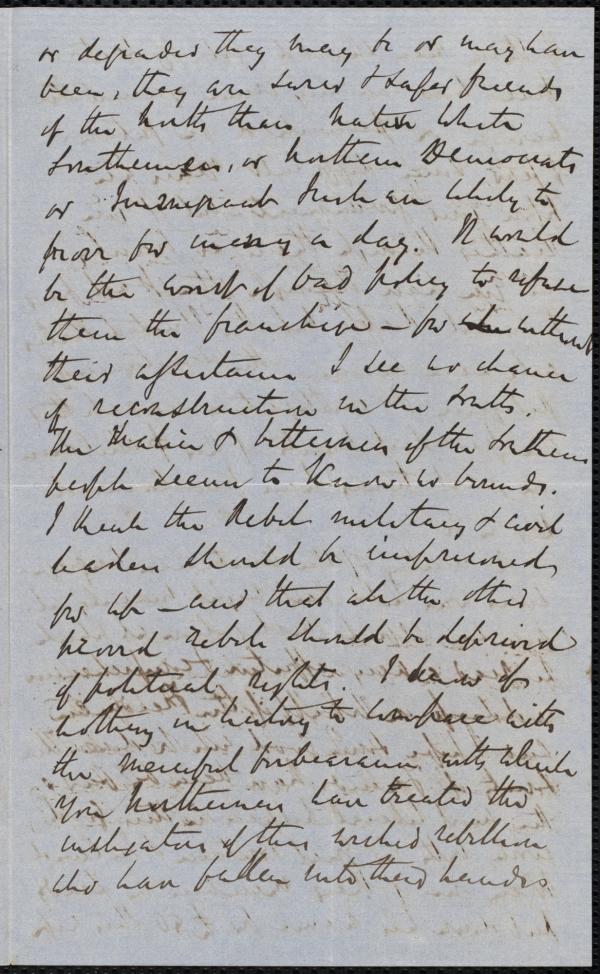 or degraded they may be or may have
been, they are surer & safer friends
of the North than native White
Southerners, or Northern Democrats
or Immigrant Irish are likely to
prove for many a day. It would
be the worst of bad policy to refuse
them the franchise – for without
their assistance I see no chance
of reconstruction in the South.
The malice & bitterness of the Southern
people seem to know no bounds.
I think the Rebel military & civil
leaders should be imprisoned
for life – and that all the other
proved rebels should be deprived
of political rights. I know of
nothing in history to compare with
the merciful forbearance with which
you Northerners have treated the
instigators of this wicked rebellion
who have fallen into their hands